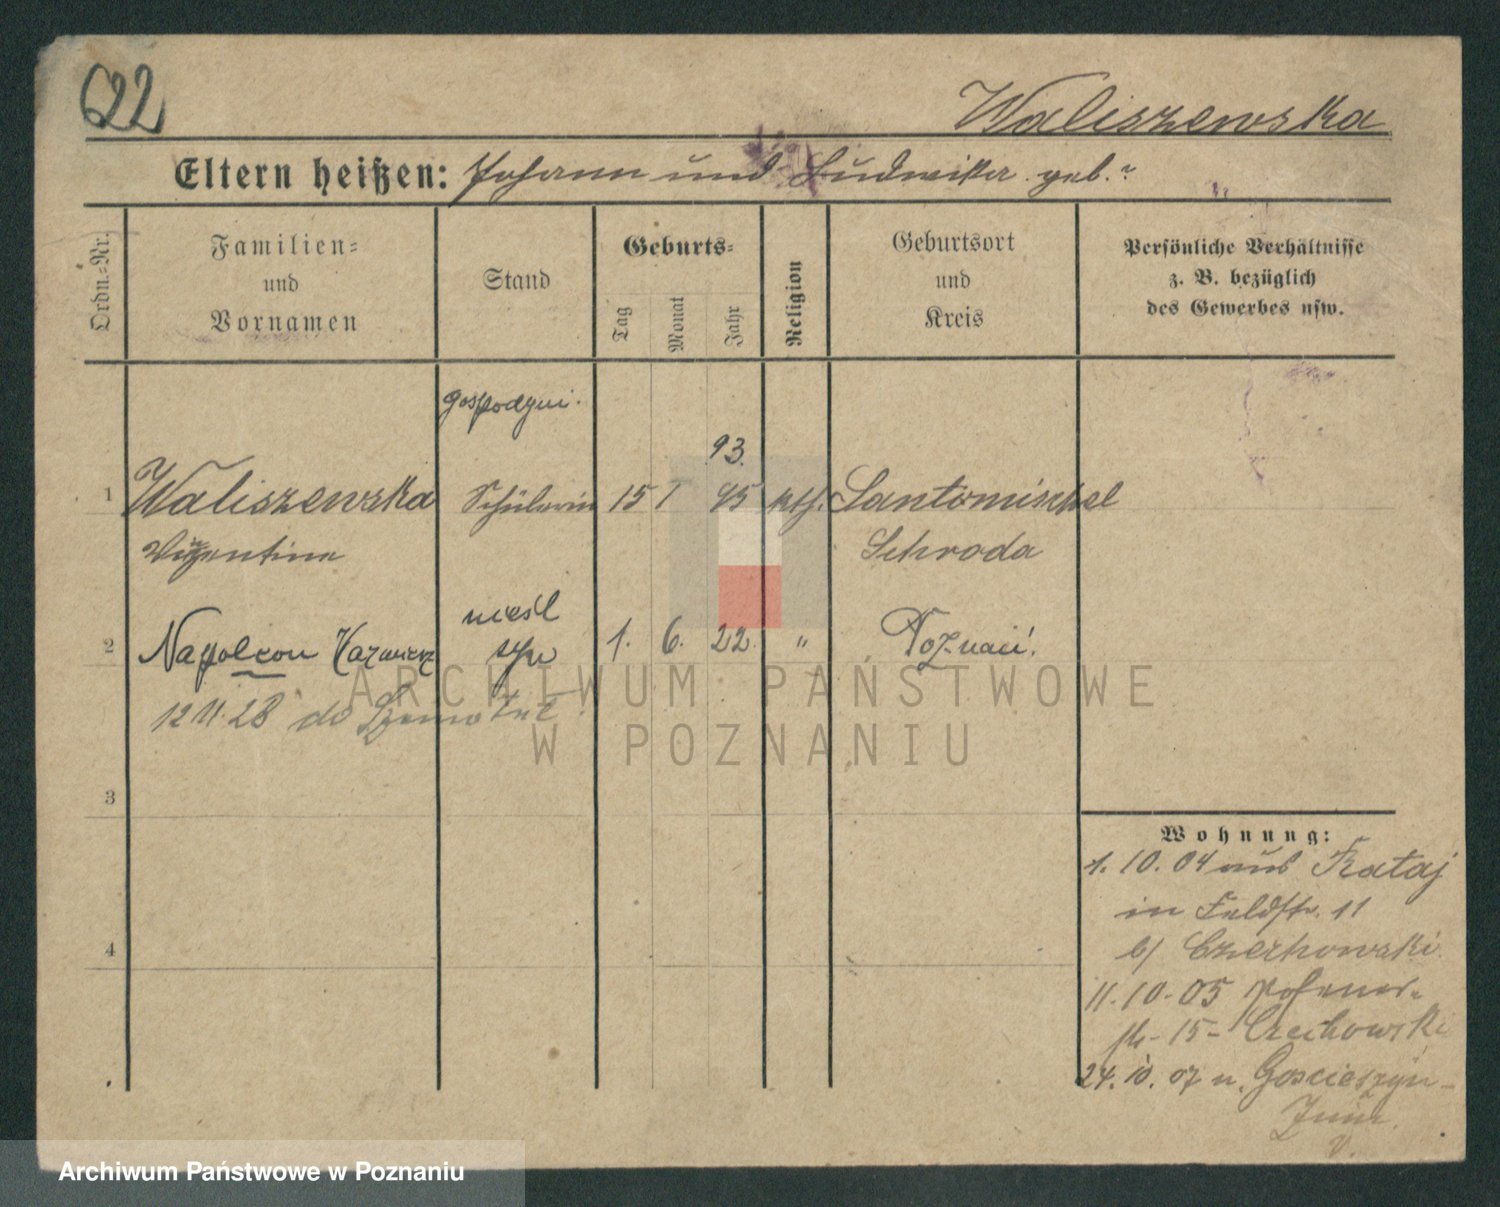 22
Waliszewska
Eltern heißen: Johann und Ludwika geb. ?
Ordn.-Nr.
Familien-
und
Vornamen
Stand
Geburts-
Tag
Monat
Jahr
Religion
Geburtsort
und
Kreis
Persönliche Verhältnisse
z. B. bezüglich
des Gewerbes usw.
gospodyni.
93.
1 Waliszewska Schülerin 15 I 95 kth. Santomischel
Schroda
nieśl
2 Napoleon Kazimierz syn 1. 6. 22. " Poznań!
12 11. 28 do
ARCHIWUM PAŃSTWOWE
W POZNANIU
3
4
Wohnung:
1. 10. 04 aus Rataj
in Feldstr. 11
b/ Czechowski
11. 10. 05 Posener-
str. 15 - Czechowski
24. 10. 07 n. Gościeszyn
Archiwum Państwowe w Poznaniu